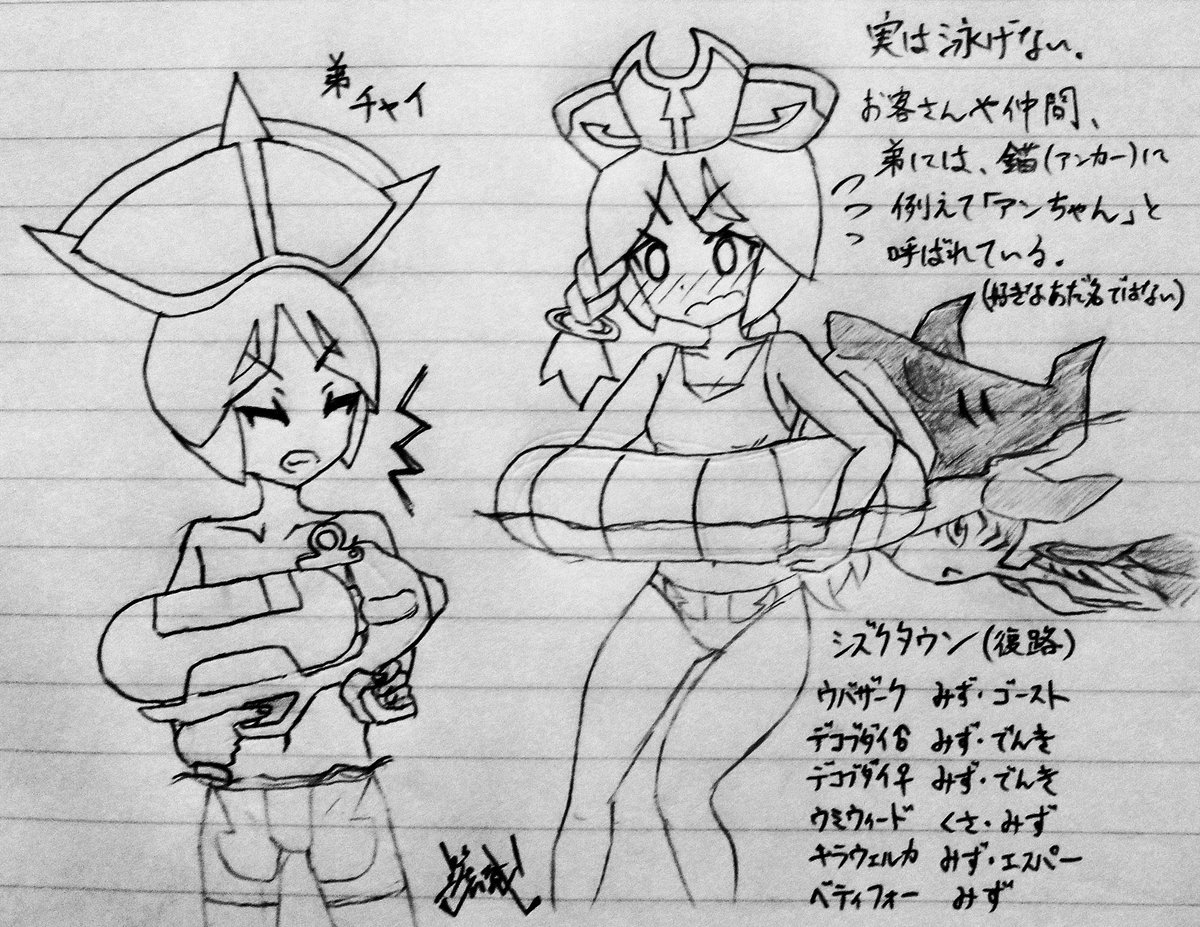 弟
チャイ
実は泳げない。
お客さんや仲間、
弟には、錨(アンカー)に
例えて「アンちゃん」と
呼ばれている。
(好きなあだ名ではない)
シズクタウン(復路)
ウバザーク みず・ゴースト
デコブダイ♂ みず・でんき
デコブダイ♀ みず・でんき
ウミウィード くさ・みず
キラウェルカ みず・エスパー
ベティフォー みず